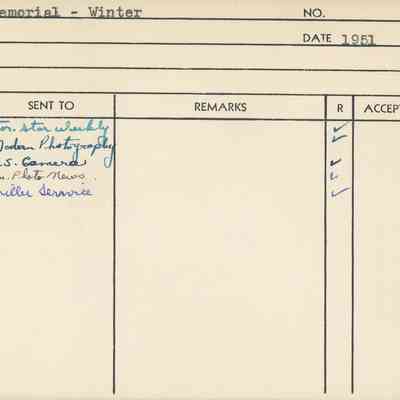 emorial - Winter NO.
DATE 1951
SENT TO REMARKS R ACCEPT
or. Star Weekly
Modern Photography
.S. Camera
. Photo News.
Service